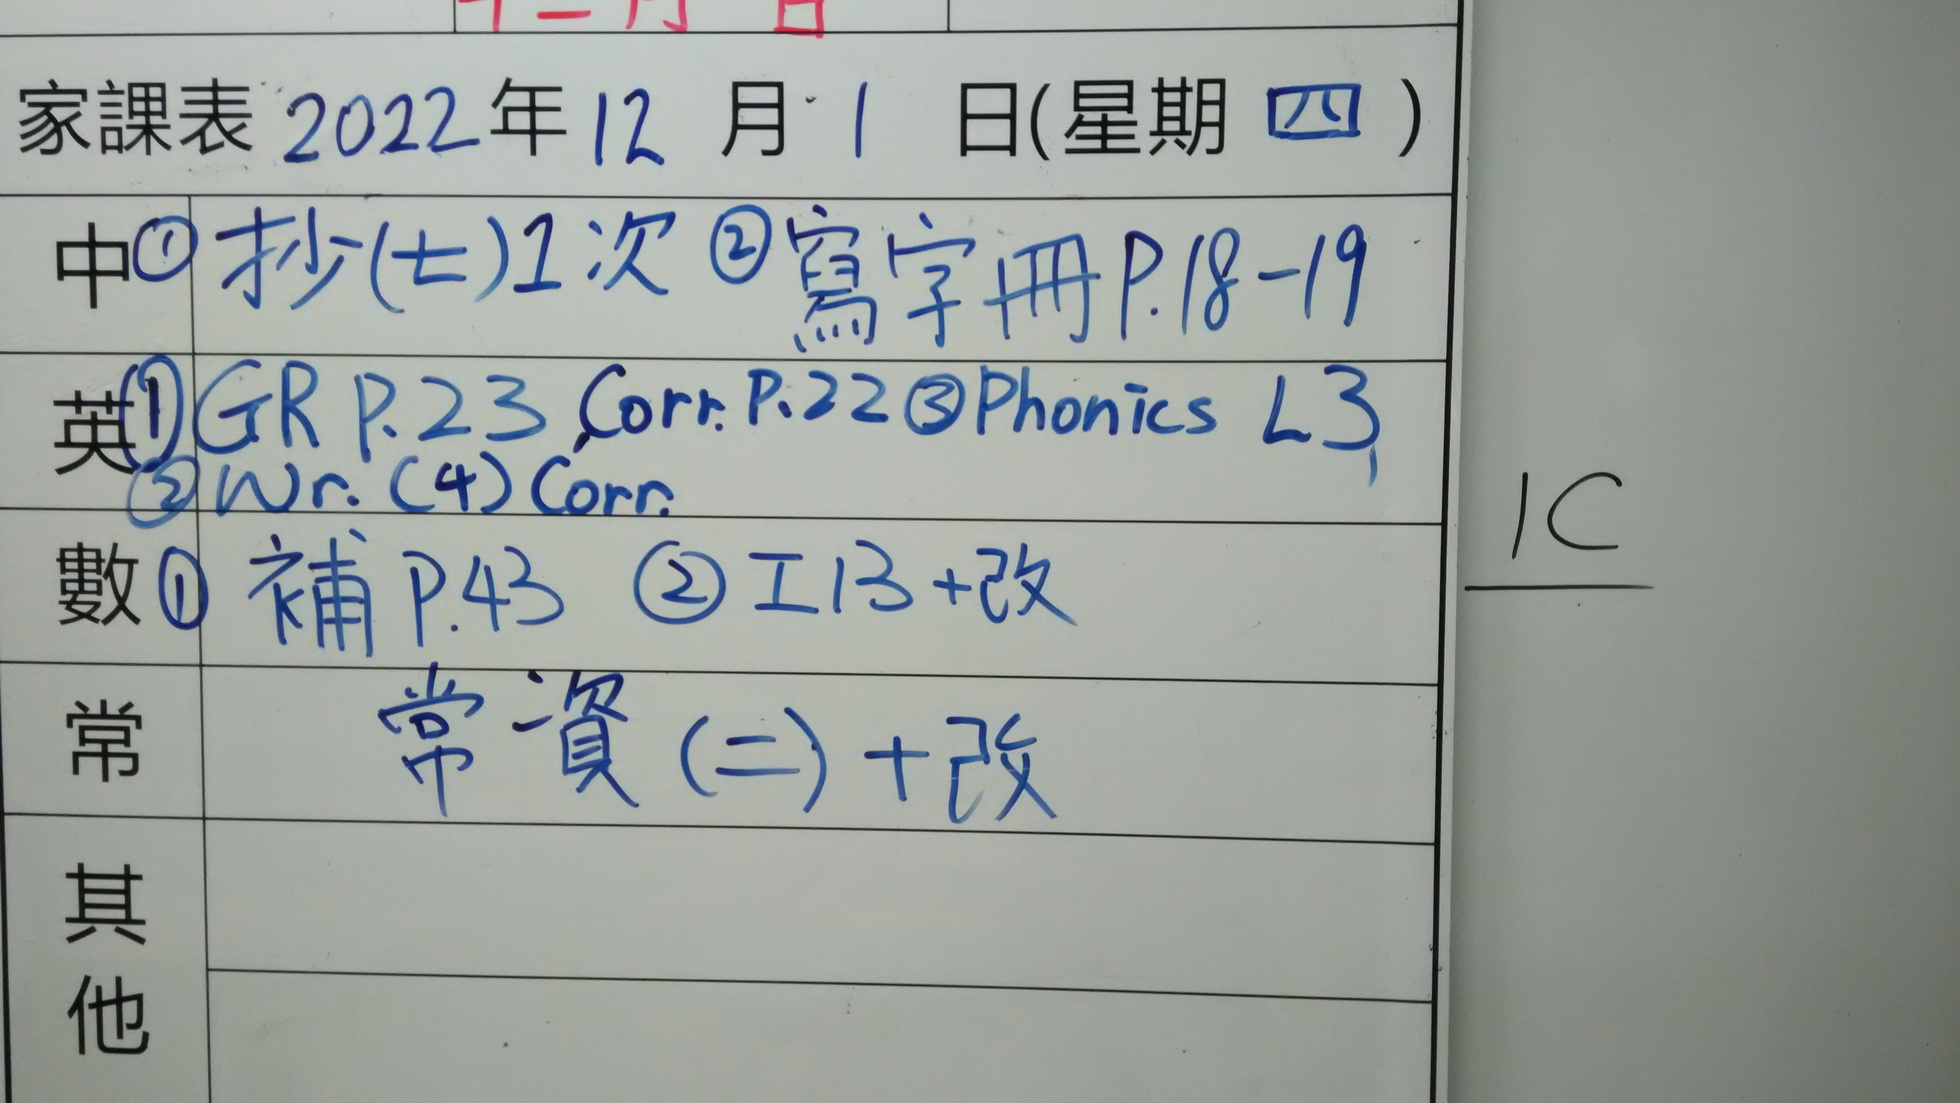 十二月 日
家課表 2022年12月1日(星期四)
中 ① 抄(七)1次 ② 寫字冊P.18-19
英 ① GR P.23, Corr. P.22 ③ Phonics L3
② Wr. (4) Corr.
數 ① 補 P.43 ② 工13+改
常 常資(二)+改
其他
1C